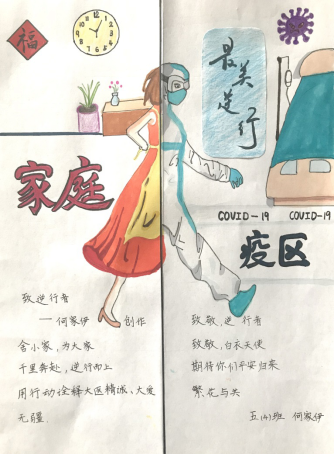 福
最美逆行
家庭
COVID-19 COVID-19
疫区
致逆行者
——何家伊 创作
舍小家，为大家
千里奔赴，逆行而上
用行动诠释大医精诚、大爱
无疆.
致敬，逆行者
致敬，白衣天使
期待你们平安归来
繁花与共
五(4)班 何家伊